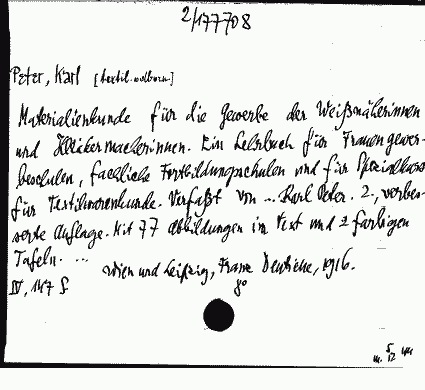 2/177708
Peter, Karl [textil.
Materialienkunde für die Gewerbe der Weißnäherinnen
und Kleidermacherinnen. Ein Lehrbuch für Frauengewer-
beschulen, fachliche Fortbildungsschulen und für Spezialkurse
für Textilwarenkunde. Verfaßt von ... Karl Peter. 2., verbes-
serte Auflage. Mit 77 Abbildungen im Text und 2 farbigen
Tafeln. ...
Wien und Leipzig, Franz Deuticke, 1916.
IV, 147 S. 8°